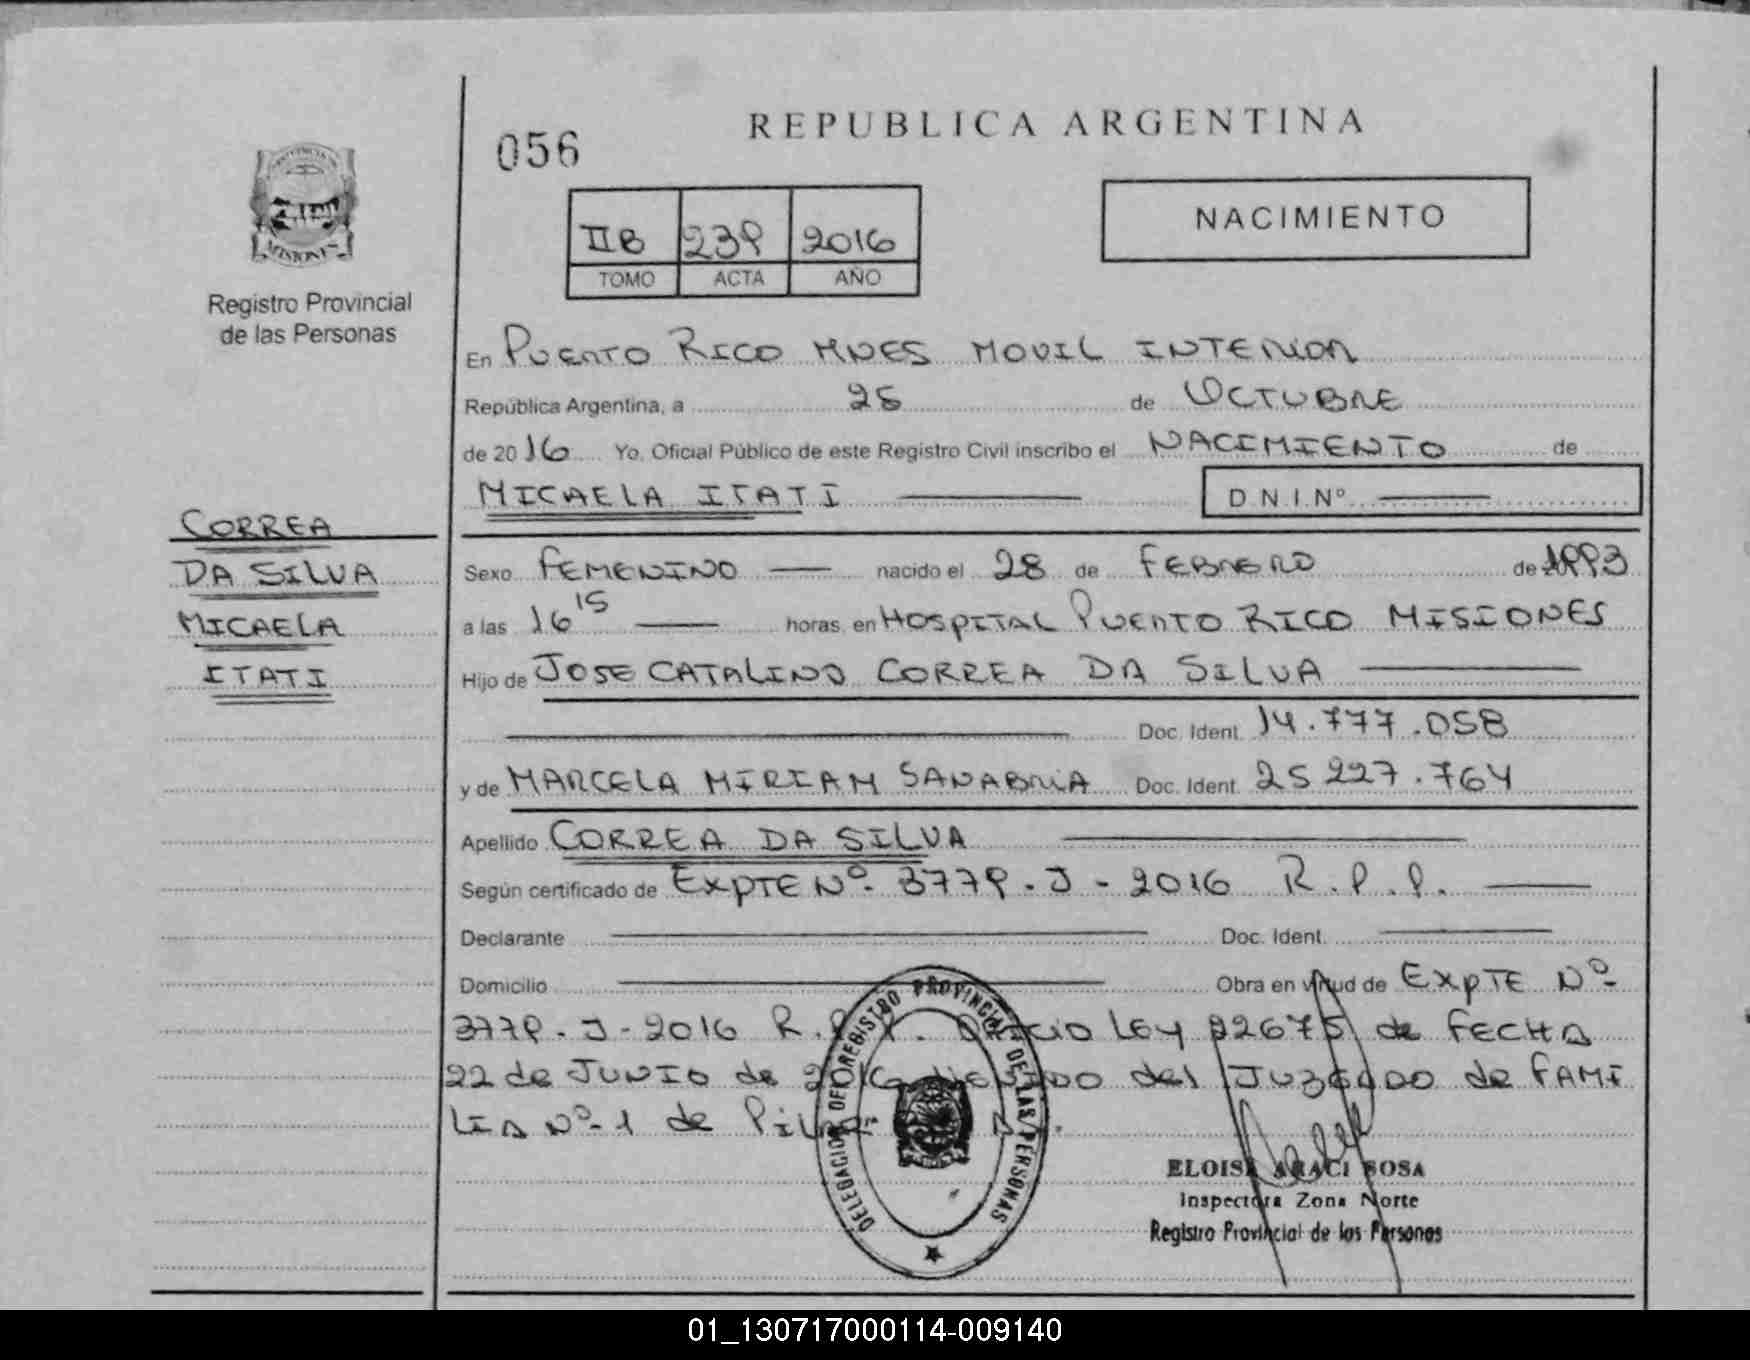 REPUBLICA ARGENTINA
056
NACIMIENTO
II B 239 2016
TOMO ACTA AÑO
MISIONES
Registro Provincial
de las Personas
En PUERTO RICO MNES MOVIL INTERIOR
República Argentina, a 25 de OCTUBRE
de 2016 Yo, Oficial Público de este Registro Civil inscribo el NACIMIENTO de
MICAELA ITATI D.N.I.Nº
CORREA
DA SILVA
MICAELA
ITATI
Sexo FEMENINO nacido el 28 de FEBRERO de 1993
a las 16 15 horas, en HOSPITAL PUERTO RICO MISIONES
Hijo de JOSE CATALINO CORREA DA SILVA
Doc. Ident. 14.777.058
y de MARCELA MIRIAM SANABRIA Doc. Ident. 25 227.764
Apellido CORREA DA SILVA
Según certificado de EXPTE Nº 3779-J-2016 R.P.P.
Declarante Doc. Ident.
Domicilio Obra en virtud de EXPTE Nº
3779-J-2016 R.P.P. OFICIO LEY 22675 de FECHA
22 de JUNIO de 2016 del JUZGADO de FAMI
LIA Nº 1 de
DELEGACION DEL REGISTRO PROVINCIAL DE LAS PERSONAS
ELOISA ARACI SOSA
Inspectora Zona Norte
Registro Provincial de las Personas
01_130717000114-009140